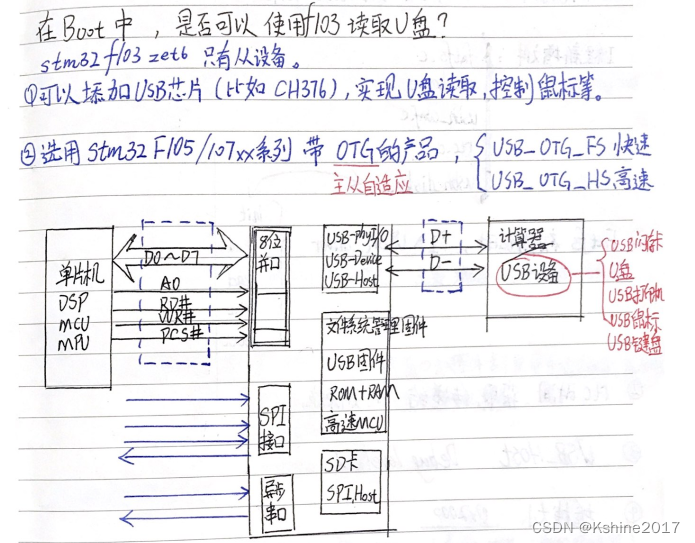 在Boot中，是否可以使用f103读取U盘？
stm32f103zet6 只有从设备。
①可以添加USB芯片（比如CH376），实现U盘读取，控制鼠标等。
②选用stm32F105/107xx系列 带 OTG的产品，
主从自适应
USB_OTG_FS 快速
USB_OTG_HS 高速
单片机
DSP
MCU
MPU
D0～D7
A0
RD#
WR#
PCS#
8位
并口
SPI
接口
异步
串口
USB-phyI/O
USB-Device
USB-Host
文件系统管理固件
USB固件
ROM+RAM
高速MCU
SD卡
SPI.Host
D+
D-
计算器
USB设备
U盘
USB打印机
USB鼠标
USB键盘
CSDN @Kshine2017